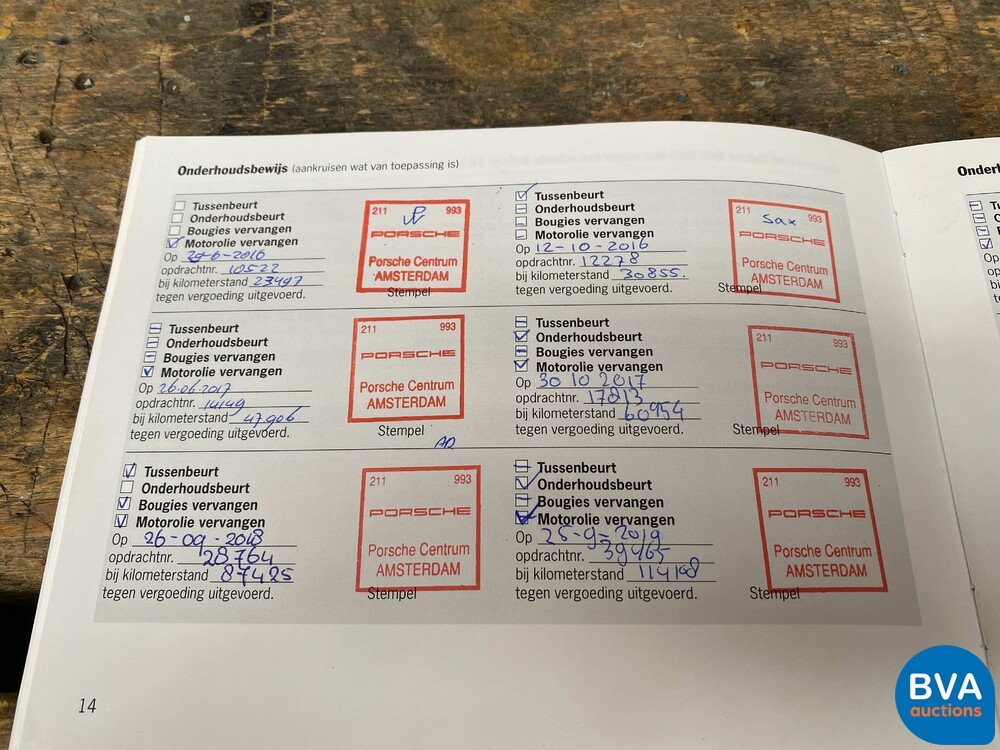 Onderhoudsbewijs (aankruisen wat van toepassing is)
Tussenbeurt
Onderhoudsbeurt
Bougies vervangen
Motorolie vervangen
Op 29-6-2016
opdrachtnr. 10522
bij kilometerstand 23497
tegen vergoeding uitgevoerd.
211 993
PORSCHE
Porsche Centrum
AMSTERDAM
Stempel
Tussenbeurt
Onderhoudsbeurt
Bougies vervangen
Motorolie vervangen
Op 12-10-2016
opdrachtnr. 12278
bij kilometerstand 30855.
tegen vergoeding uitgevoerd.
211 993
Sax
PORSCHE
Porsche Centrum
AMSTERDAM
Stempel
Tussenbeurt
Onderhoudsbeurt
Bougies vervangen
Motorolie vervangen
Op 26.06.2017
opdrachtnr. 14149
bij kilometerstand 47906
tegen vergoeding uitgevoerd.
211 993
PORSCHE
Porsche Centrum
AMSTERDAM
Stempel
Tussenbeurt
Onderhoudsbeurt
Bougies vervangen
Motorolie vervangen
Op 30 10 2017
opdrachtnr. 17813
bij kilometerstand 60954
tegen vergoeding uitgevoerd.
211 993
PORSCHE
Porsche Centrum
AMSTERDAM
Stempel
Tussenbeurt
Onderhoudsbeurt
Bougies vervangen
Motorolie vervangen
Op 26-09-2018
opdrachtnr. 28764
bij kilometerstand 87425
tegen vergoeding uitgevoerd.
211 993
PORSCHE
Porsche Centrum
AMSTERDAM
Stempel
Tussenbeurt
Onderhoudsbeurt
Bougies vervangen
Motorolie vervangen
Op 25-9-2019
opdrachtnr. 39465
bij kilometerstand 114108
tegen vergoeding uitgevoerd.
211 993
PORSCHE
Porsche Centrum
AMSTERDAM
Stempel
14
BVA
auctions